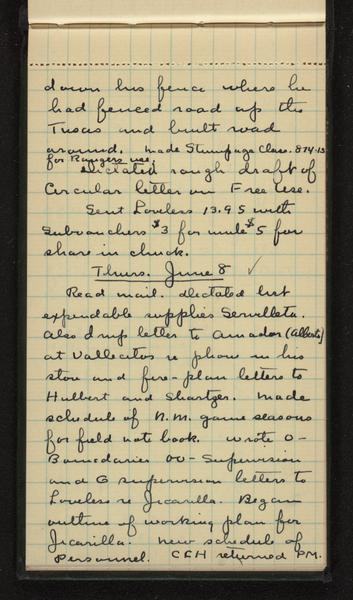 down his fence where he
had fenced road up the
Tusas and built road
around. Made Stumpage Class. 874-13
for Rangers use.
Dictated rough draft of
Circular letter on Free Use.
Sent Loveless 13.95 with
Subvouchers $3 for mule $5 for
share in chuck.
Thurs. June 8
Read mail. Dictated list
expendable supplies Servilleta.
Also D nup letter to Amador (Alberto)
at Vallecitos re phone in his
store and fire-plan letters to
Hulbert and Shartzer. Made
schedule of N.M. game seasons
for field note book. Wrote O-
Boundaries OO-Supervision
and G supervision letters to
Loveless re Jicarilla. Began
outline of working plan for
Jicarilla. New schedule of
Personnel. CEH returned PM.